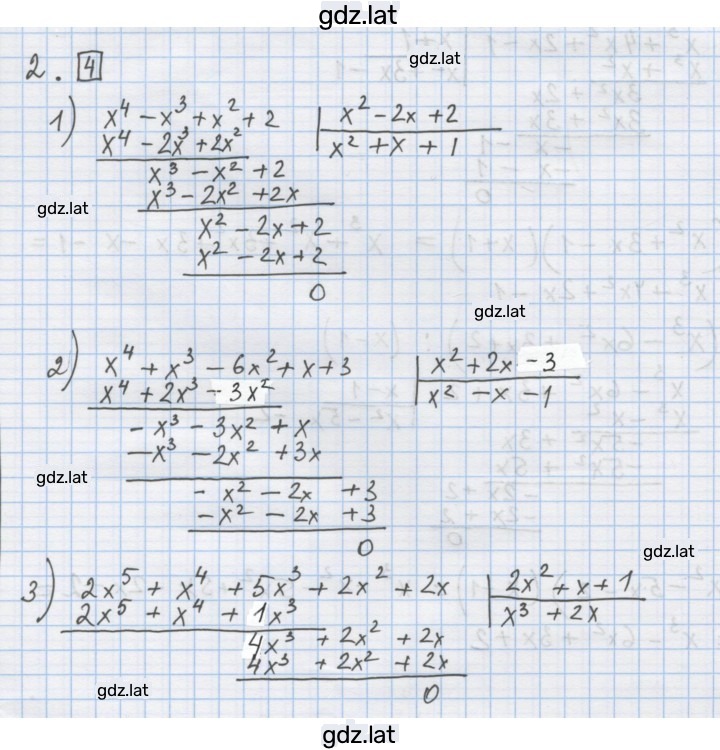 gdz.lat
gdz.lat
2. 4
1) x⁴ - x³ + x² + 2 | x² - 2x + 2
x⁴ - 2x³ + 2x² | x² + x + 1
x³ - x² + 2
gdz.lat
x³ - 2x² + 2x
x² - 2x + 2
x² - 2x + 2
0
gdz.lat
2) x⁴ + x³ - 6x² + x + 3 | x² + 2x - 3
x⁴ + 2x³ - 3x² | x² - x - 1
- x³ - 3x² + x
- x³ - 2x² + 3x
gdz.lat
- x² - 2x + 3
- x² - 2x + 3
0
gdz.lat
3) 2x⁵ + x⁴ + 5x³ + 2x² + 2x | 2x² + x + 1
2x⁵ + x⁴ + 1x³ | x³ + 2x
4x³ + 2x² + 2x
4x³ + 2x² + 2x
gdz.lat
0
gdz.lat